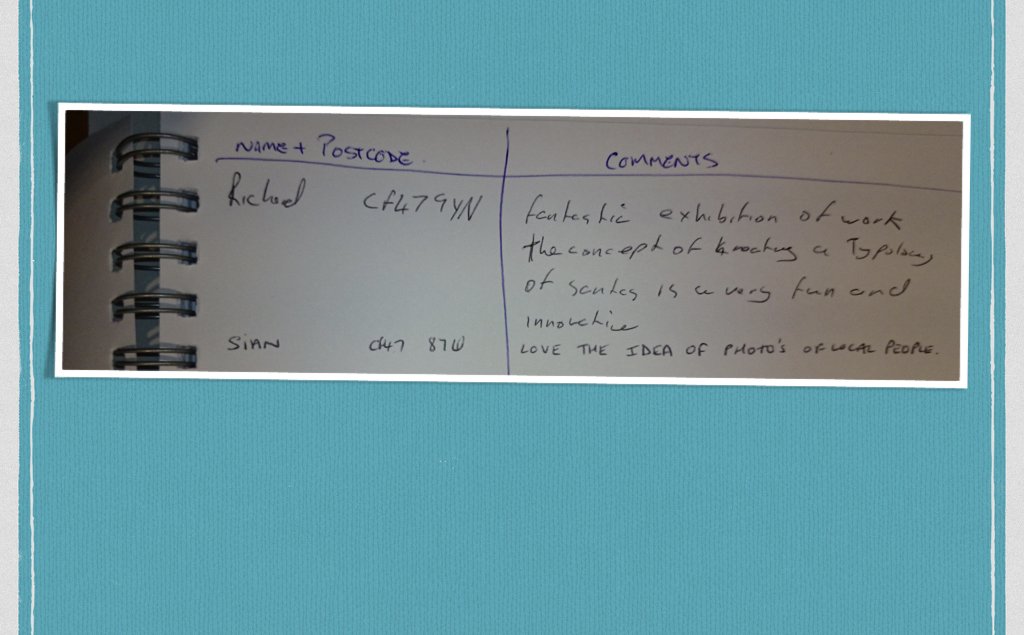 NAME + POSTCODE.
COMMENTS
Richard CF47 9YN
fantastic exhibition of work
the concept of creating a Typology
of santas is a very fun and
innovative
SIAN CF47
LOVE THE IDEA OF PHOTO'S OF LOCAL PEOPLE.